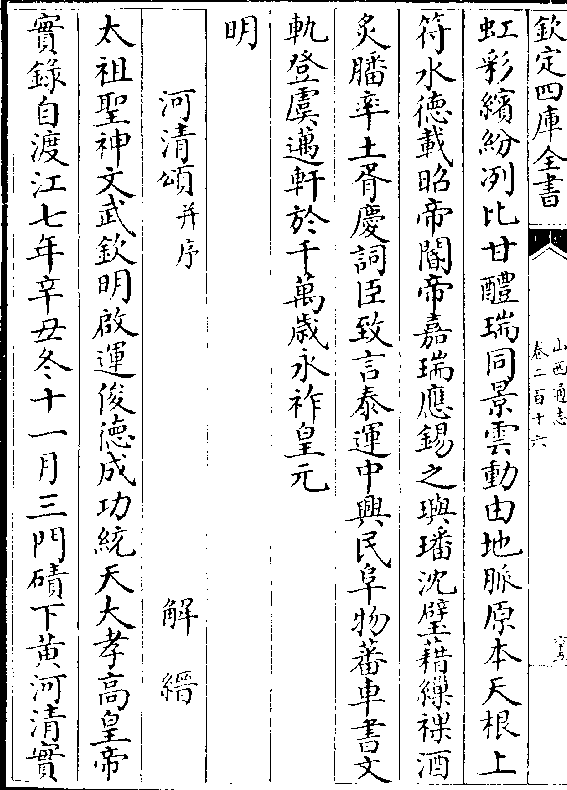 欽定四庫全書
山西通志
卷二百十六
虹彩繽紛冽比甘醴瑞同景雲動由地脈原本天根上
符水德載昭帝閽帝嘉瑞應錫之璵璠沈璧藉繅祼酒
炙膰率土胥慶詞臣致言泰運中興民阜物蕃車書文
軌登虞邁軒於千萬歲永祚皇元
明
河清頌并序　解縉
太祖聖神文武欽明啟運俊德成功統天大孝高皇帝
實錄自渡江七年辛丑冬十一月三門磧下黄河清實